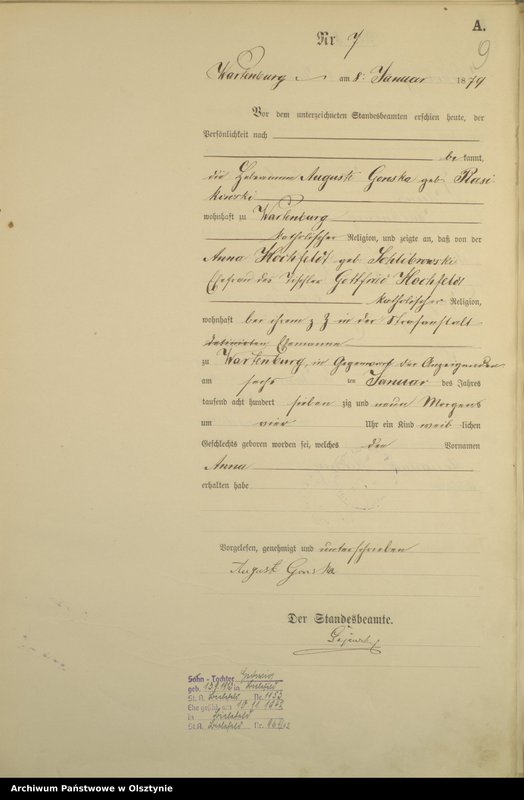 A.
9
Nr 7
Wartenburg am 8. Januar 1879
Vor dem unterzeichneten Standesbeamten erschien heute, der
Persönlichkeit nach
be kannt,
die Hebeamme Auguste Gonska geb. Rasi
kowski
wohnhaft zu Wartenburg
katholischer Religion, und zeigte an, daß von der
Anna Hochfeldt geb.
Ehefrau des Tischler Gottfried Hochfeldt
katholischer Religion,
wohnhaft bei ihrem z Z in der Strafanstalt
detinirten Ehemanne
zu Wartenburg, in Gegenwart der Anzeigenden
am sechs ten Januar des Jahres
tausend acht hundert sieben zig und neun Morgens
um vier Uhr ein Kind weib lichen
Geschlechts geboren worden sei, welches den Vornamen
Anna
erhalten habe
Vorgelesen, genehmigt und unterschrieben
August Gonska
Der Standesbeamte.
Sohn - Tochter
geb. in
St. A. Nr. 1153
Ehe geschl. am
in
St.A. Nr.
Archiwum Państwowe w Olsztynie